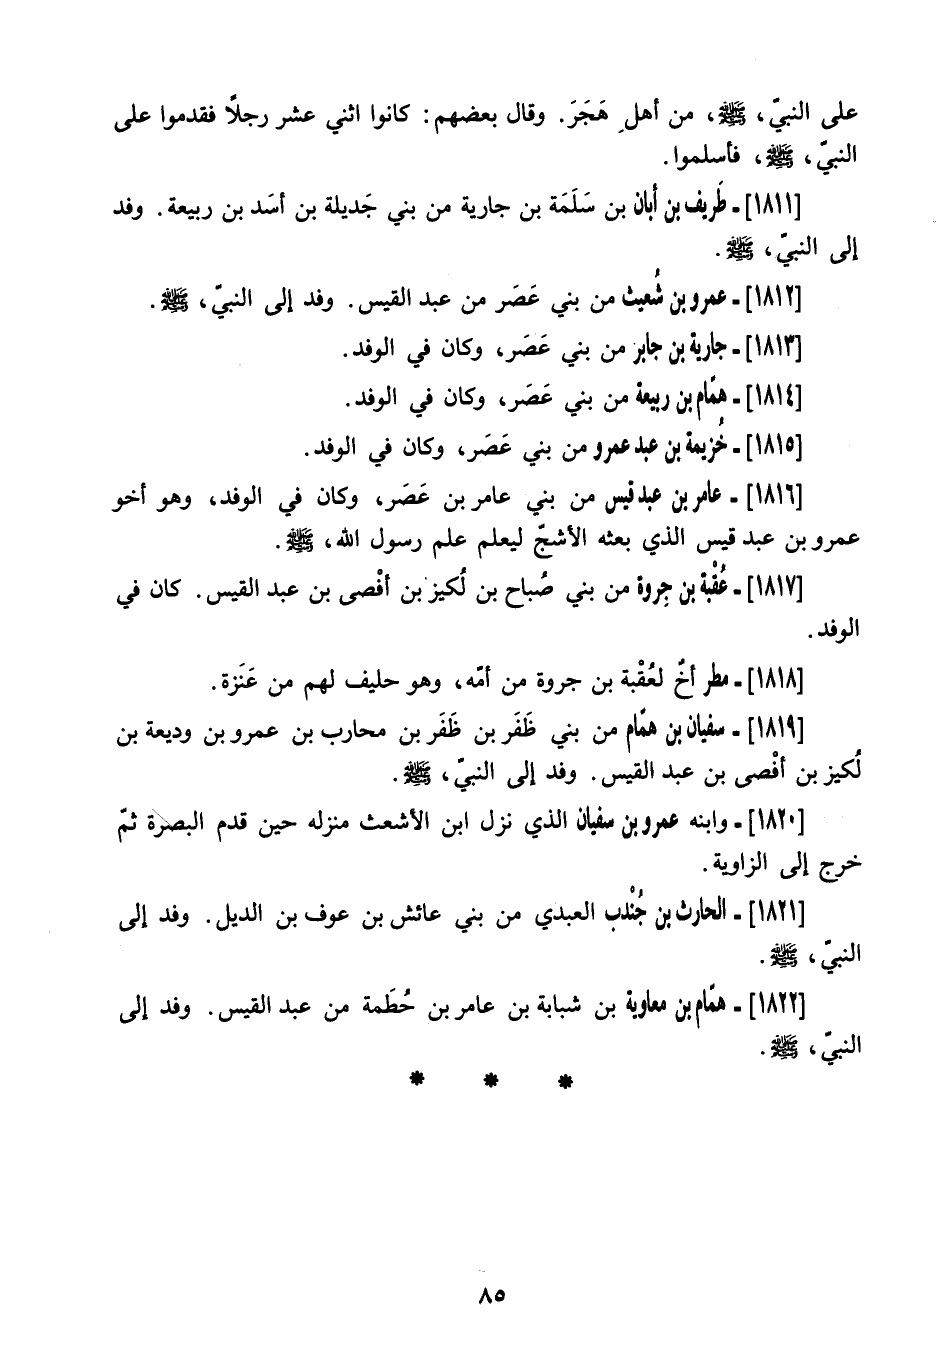 على النبيّ، ﷺ، من أهلِ هَجَرَ. وقال بعضهم: كانوا اثني عشر رجلًا فقدموا على
النبيّ، ﷺ، فأسلموا.
[١٨١١] ـ طَريف بن أبان بن سَلَمَة بن جارية من بني جَديلة بن أسَد بن ربيعة. وفد
إلى النبيّ، ﷺ.
[١٨١٢] ـ عمرو بن شُعيث من بني عَصَر من عبد القيس. وفد إلى النبيّ، ﷺ.
[١٨١٣] ـ جارية بن جابر من بني عَصَر، وكان في الوفد.
[١٨١٤] ـ همّام بن ربيعة من بني عَصَر، وكان في الوفد.
[١٨١٥] ـ خُزيمة بن عبد عمرو من بني عَصَر، وكان في الوفد.
[١٨١٦] ـ عامر بن عبد قيس من بني عامر بن عَصَر، وكان في الوفد، وهو أخو
عمرو بن عبد قيس الذي بعثه الأشجّ ليعلم علم رسول الله، ﷺ.
[١٨١٧] ـ عُقْبة بن جِروة من بني صُباح بن لُكيز بن أفْصى بن عبد القيس. كان في
الوفد.
[١٨١٨] ـ مطر أخٌ لعُقْبة بن جروة من أمّه، وهو حليف لهم من عَنَزة.
[١٨١٩] ـ سفيان بن همّام من بني ظَفَر بن ظَفَر بن محارب بن عمرو بن وديعة بن
لُكيز بن أفْصى بن عبد القيس. وفد إلى النبيّ، ﷺ.
[١٨٢٠] ـ وابنه عمرو بن سفيان الذي نزل ابن الأشعث منزله حين قدم البصرة ثمّ
خرج إلى الزاوية.
[١٨٢١] ـ الحارث بن جُنْدب العبدي من بني عائش بن عوف بن الديل. وفد إلى
النبيّ، ﷺ.
[١٨٢٢] ـ همّام بن معاوية بن شبابة بن عامر بن حُطَمة من عبد القيس. وفد إلى
النبيّ، ﷺ.
* * *
٨٥